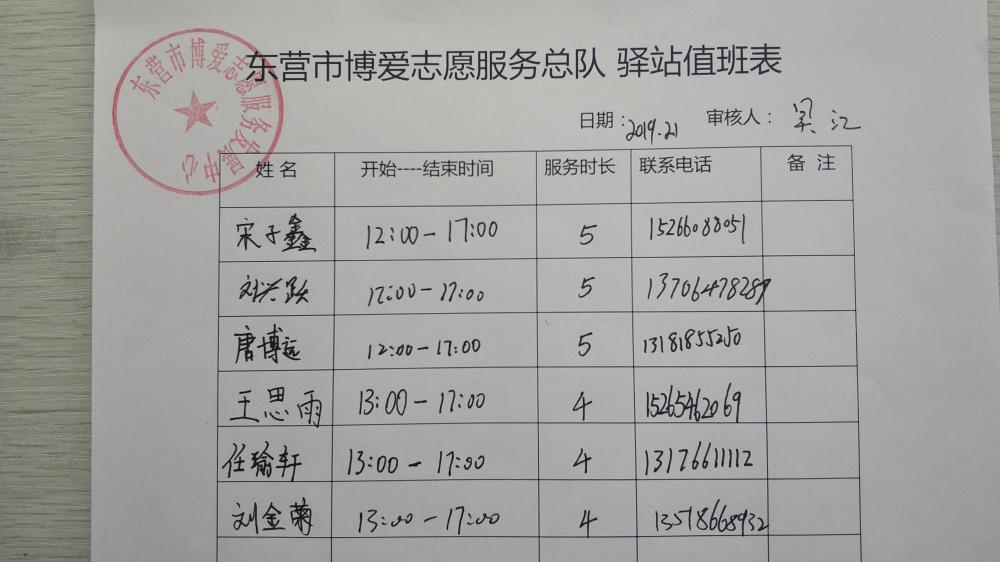 东营市博爱志愿服务总队 驿站值班表
东营市博爱志愿服务发展中心
日期：2019.21 审核人：吴江
姓名 开始----结束时间 服务时长 联系电话 备 注
宋子鑫 12:00-17:00 5 15266088051
刘兴跃 12:00-17:00 5 13706478289
唐博远 12:00-17:00 5 13181855250
王思雨 13:00-17:00 4 15265462069
任瑜轩 13:00-17:00 4 13176611112
刘金菊 13:00-17:00 4 13518668932